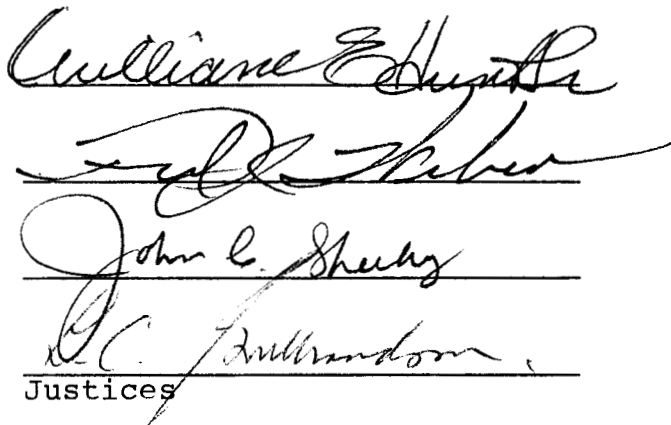 William E Hunt Sr
Fred J. Weber
John C. Sheehy
L. C. Gulbrandson
Justices